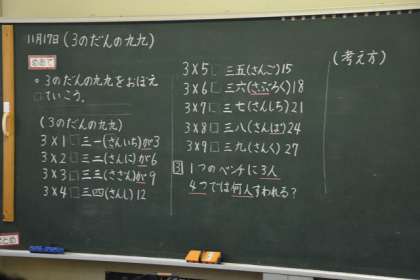 11月17日(3のだんの九九)
めあて
○3のだんの九九をおぼえ
ていこう。
(3のだんの九九)
3×1□三一(さんいち)が3
3×2□三二(さんに)が6
3×3□三三(さざん)が9
3×4□三四(さんし)12
3×5□三五(さんご)15
3×6□三六(さぶろく)18
3×7□三七(さんしち)21
3×8□三八(さんぱ)24
3×9□三九(さんく)27
3 1つのベンチに3人
4つでは何人すわれる?
(考え方)
まとめ